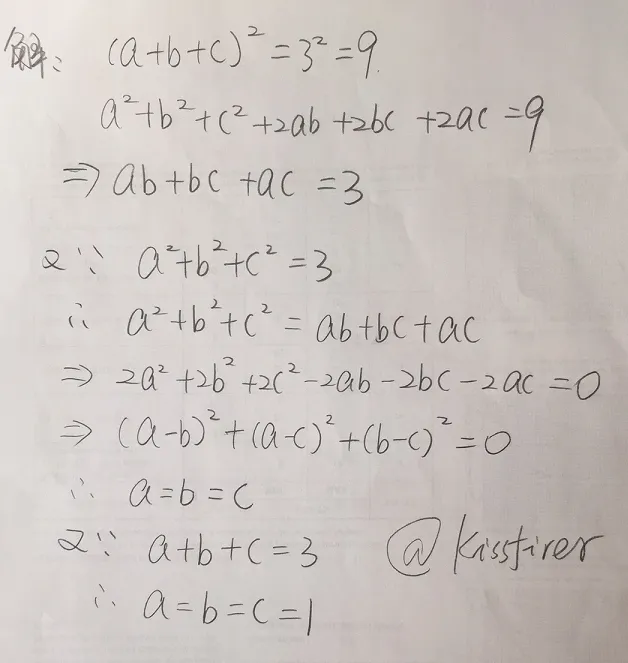 解: (a+b+c)²=3²=9.
a²+b²+c²+2ab+2bc+2ac=9
⇒ ab+bc+ac=3
又∵ a²+b²+c²=3
∴ a²+b²+c²=ab+bc+ac
⇒ 2a²+2b²+2c²-2ab-2bc-2ac=0
⇒ (a-b)²+(a-c)²+(b-c)²=0
∴ a=b=c
又∵ a+b+c=3
@kissfirer
∴ a=b=c=1